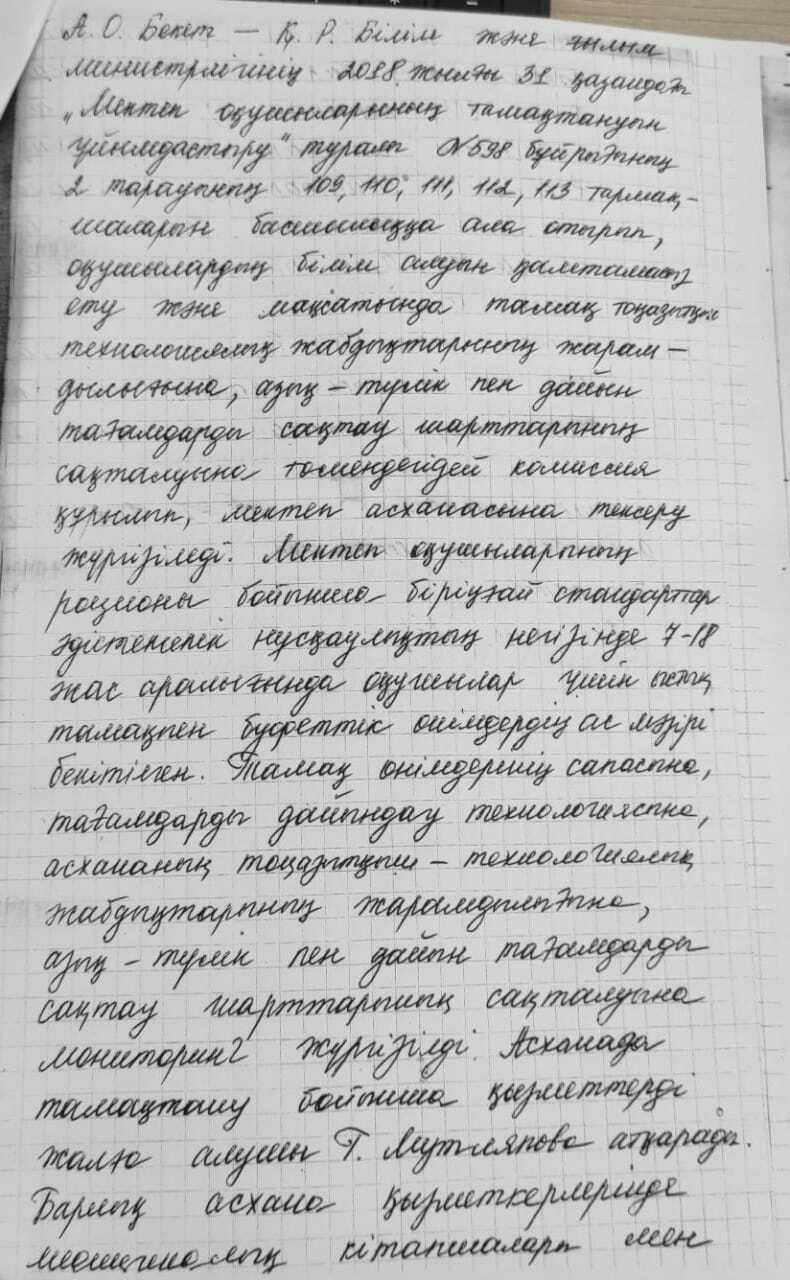 А. О. Бекет — Қ. Р. Білім және ғылым
министрлігінің 2018 жылғы 31 қазандағы
„Мектеп оқушыларының тамақтануын
ұйымдастыру" туралы №598 бұйрығының
2 тарауының 109, 110, 111, 112, 113 тармақ-
шаларын басшылыққа ала отырып,
оқушылардың білім алуын қамтамасыз
ету және мақсатында тамақ тоңазытқыш
технологиялық жабдықтарының жарам-
дылығына, азық-түлік пен дайын
тағамдарды сақтау шарттарының
сақталуына төмендегідей комиссия
құрылып, мектеп асханасына тексеру
жүргізіледі. Мектеп оқушыларының
рационы бойынша бірыңғай стандарттар
әдістемелік нұсқаулықтың негізінде 7-18
жас аралығында оқушылар үшін ыстық
тамақпен буфеттік өнімдердің ас мәзірі
бекітілген. Тамақ өнімдерінің сапасына,
тағамдарды дайындау технологиясына,
асхананың тоңазытқыш - технологиялық
жабдықтарының жарамдылығына,
азық-түлік пен дайын тағамдарды
сақтау шарттарының сақталуына
мониторинг жүргізілді. Асханада
тамақтану бойынша қызметтерді
жалға алушы Г. атқарады.
Барлық асхана қызметкерлерінде
кітапшалары мен